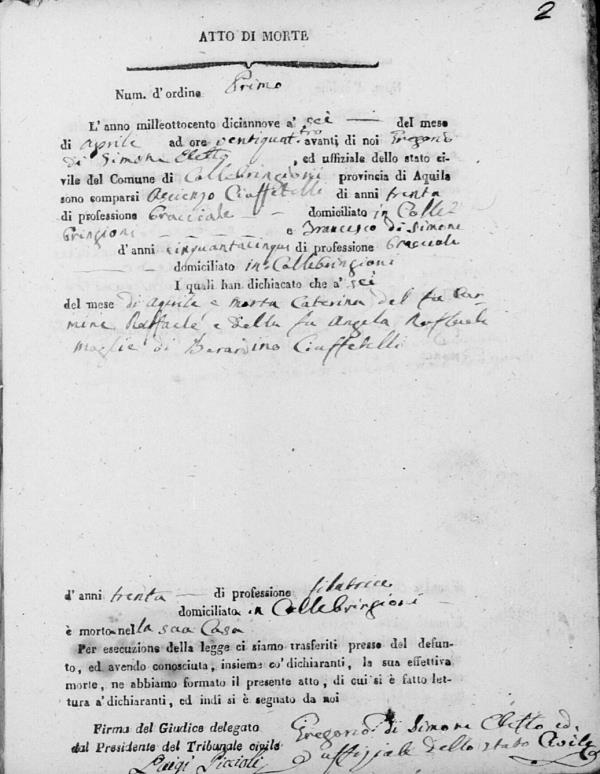 2
ATTO DI MORTE
Num. d'ordine Primo
L'anno milleottocento diciannove a' sei del mese
di aprile ad ore ventiquattro avanti di noi Gregorio
di Simone Eletto, ed uffiziale dello stato ci-
vile del Comune di Collebringioni provincia di Aquila
sono comparsi Ciaffetelli di anni trenta
di professione Bracciale domiciliato in Colle
Bringioni e Francesco di Simone
d'anni cinquantacinque di professione Bracciale
domiciliato in Collebringioni
I quali han dichiacato che a' sei
del mese di Aprile e morta Caterina del fu Car-
mine Raffaele e della fu Angela Raffaele
moglie di Berardino Ciaffetelli
d' anni trenta di professione filatrice
domiciliato in Collebringioni
è morto nella sua Casa
Per esecuzione della legge ci siamo trasferiti presso del defun-
to, ed avendo conosciuta, insieme co' dichiaranti, la sua effettiva
morte, ne abbiamo formato il presente atto, di cui si è fatto let-
tura a' dichiaranti, ed indi si è segnato da noi
Firma del Giudice delegato
dal Presidente del Tribunale civile
Gregorio di Simone Eletto ed
uffiziale dello stato Civile
Luigi Piccioli